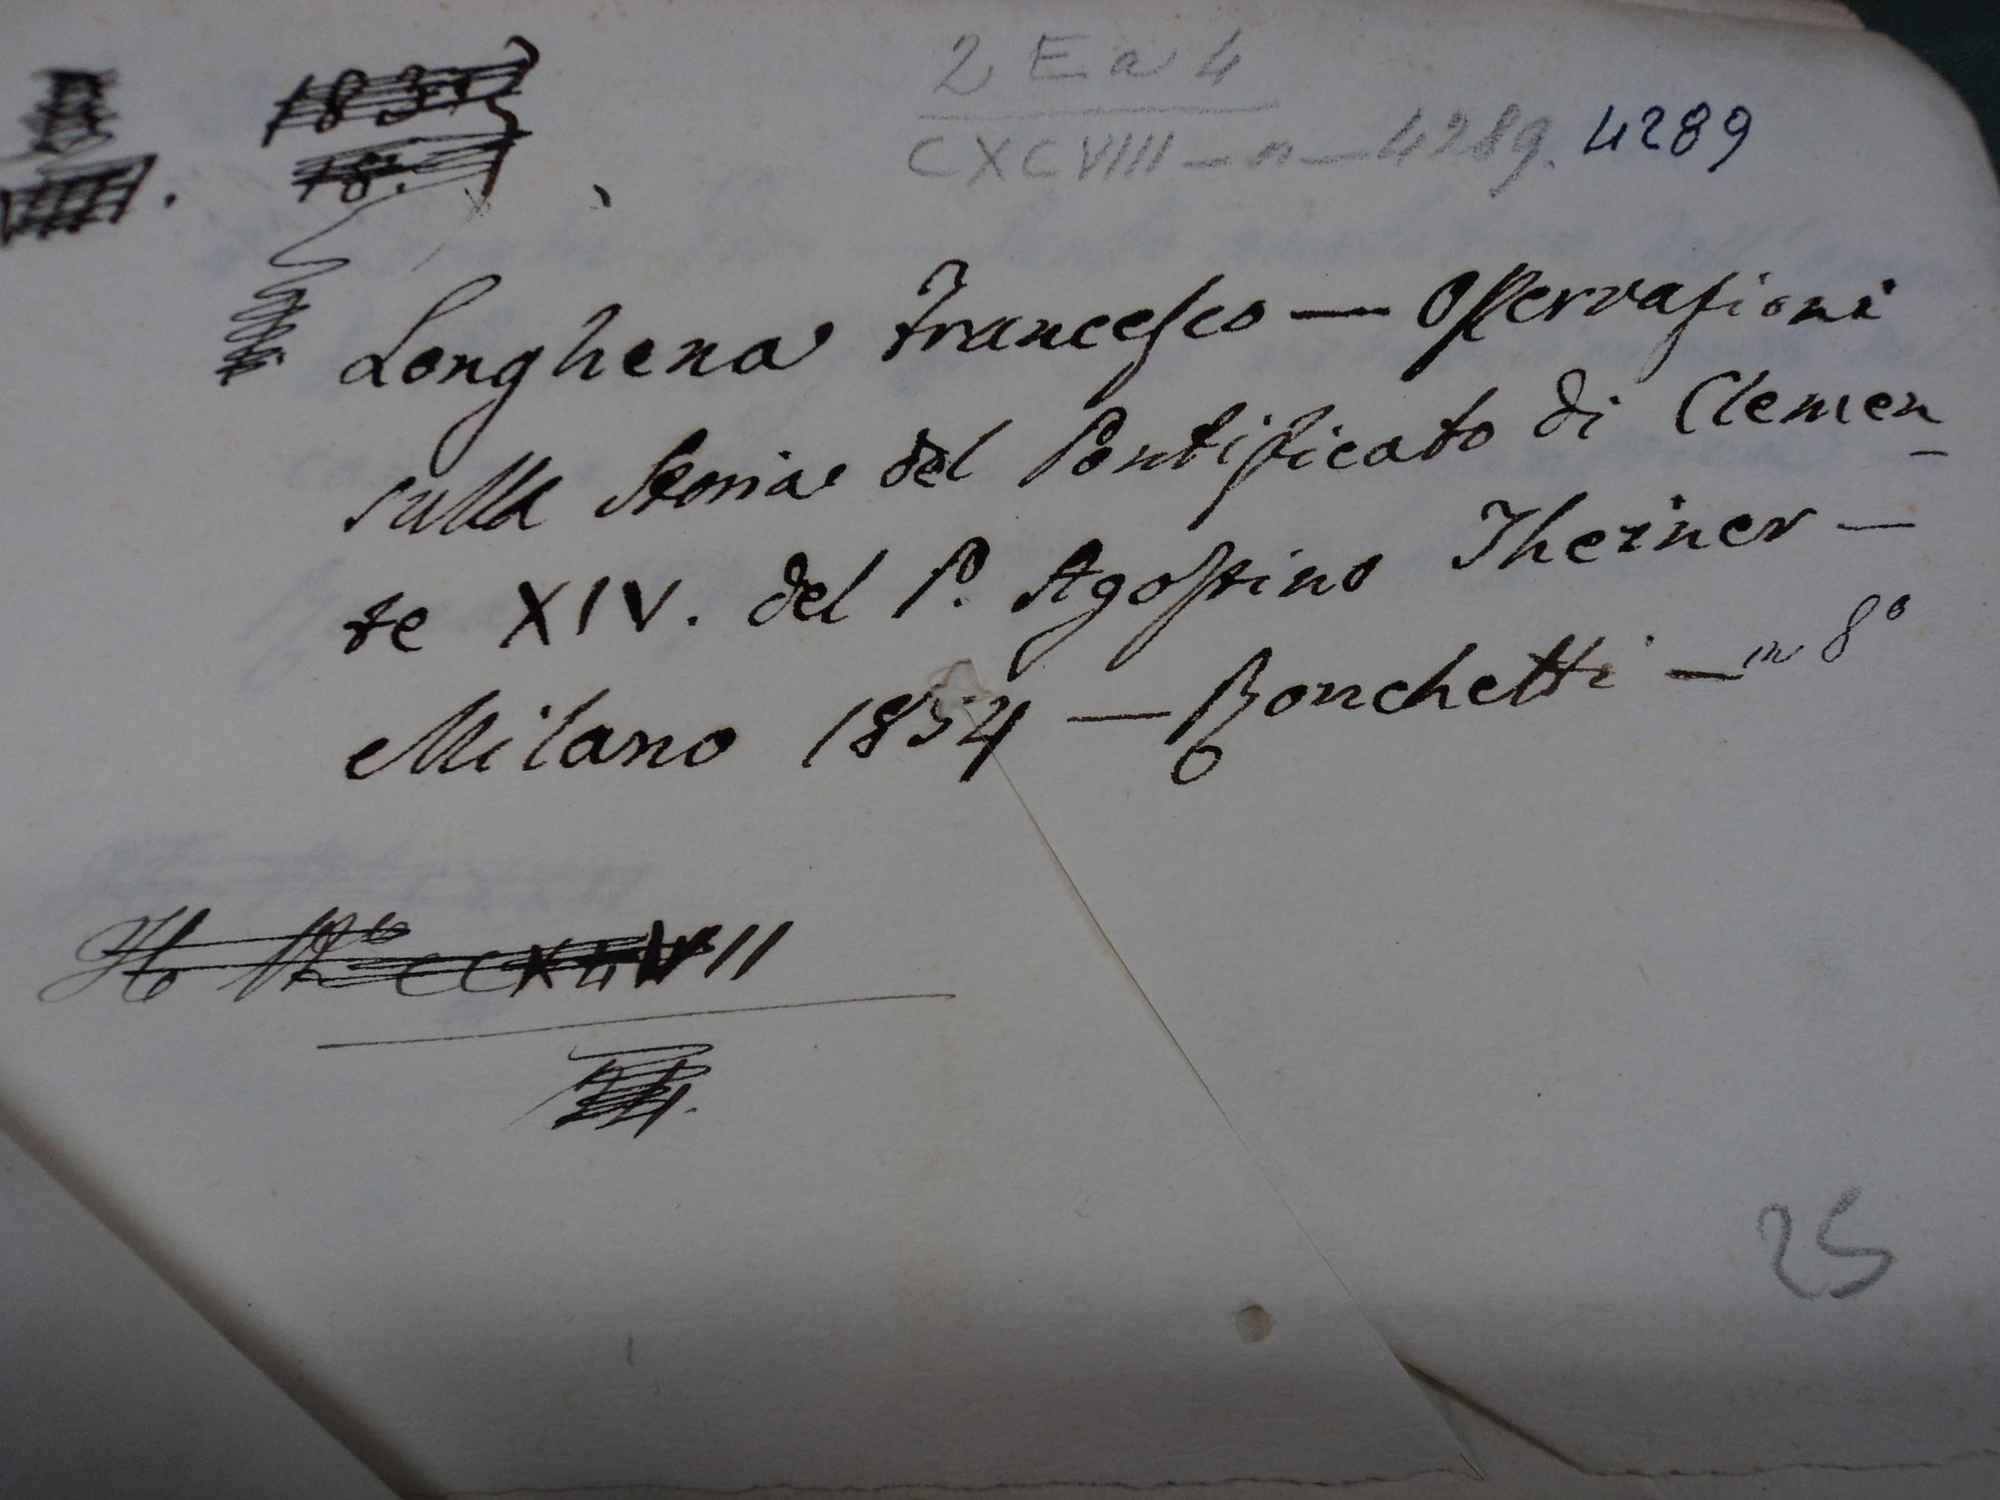 2 E a 4
CXCVIII — n — 4289. 4289
1837
18.
Longhena Francesco — Osservazioni
sulla Storia del Pontificato di Clemen-
te XIV. del P. Agostino Theiner —
Milano 1854 — Ronchetti — in 8º
25